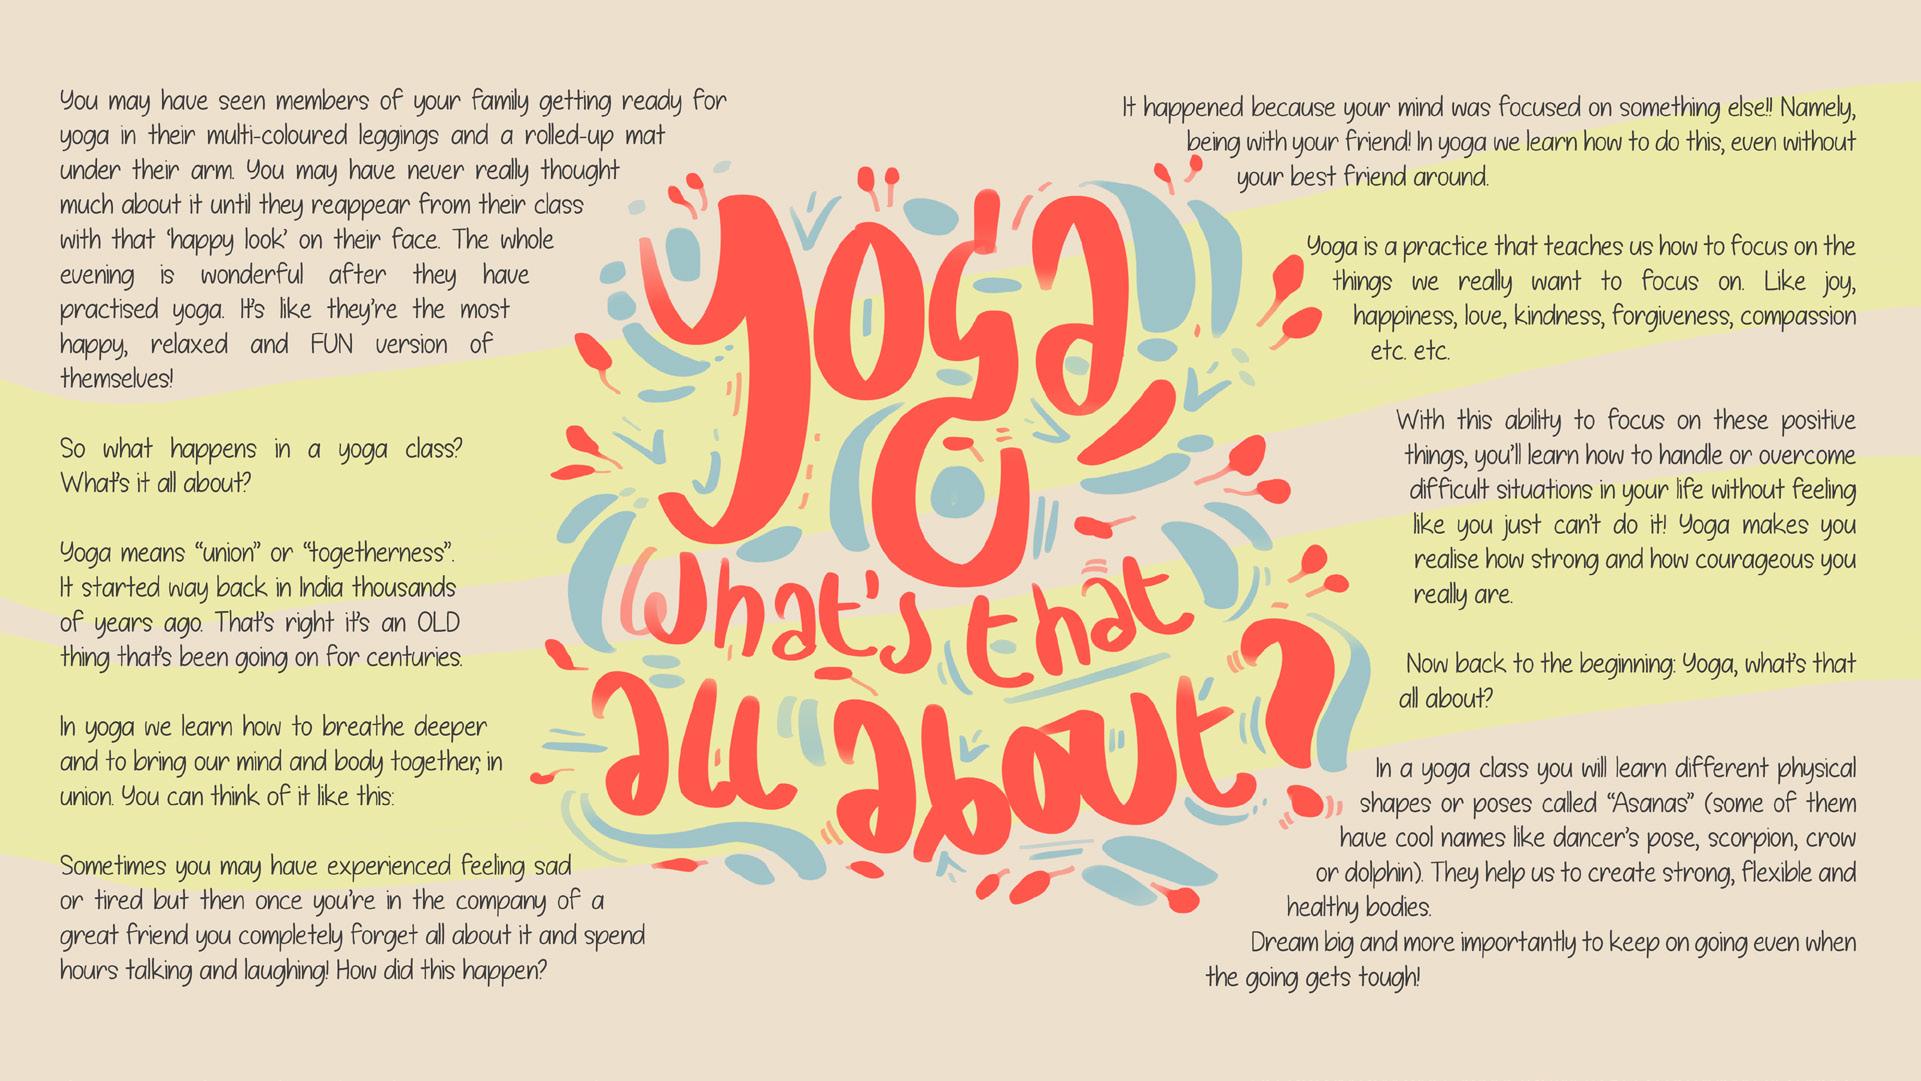 You may have seen members of your family getting ready for
yoga in their multi-coloured leggings and a rolled-up mat
under their arm. You may have never really thought
much about it until they reappear from their class
with that 'happy look' on their face. The whole
evening is wonderful after they have
practised yoga. It's like they're the most
happy, relaxed and FUN version of
themselves!
So what happens in a yoga class?
What's it all about?
Yoga means "union" or "togetherness".
It started way back in India thousands
of years ago. That's right it's an OLD
thing that's been going on for centuries.
In yoga we learn how to breathe deeper
and to bring our mind and body together, in
union. You can think of it like this:
Sometimes you may have experienced feeling sad
or tired but then once you're in the company of a
great friend you completely forget all about it and spend
hours talking and laughing! How did this happen?
Yoga
What's that
all about?
It happened because your mind was focused on something else!! Namely,
being with your friend! In yoga we learn how to do this, even without
your best friend around.
Yoga is a practice that teaches us how to focus on the
things we really want to focus on. Like joy,
happiness, love, kindness, forgiveness, compassion
etc. etc.
With this ability to focus on these positive
things, you'll learn how to handle or overcome
difficult situations in your life without feeling
like you just can't do it! Yoga makes you
realise how strong and how courageous you
really are.
Now back to the beginning: Yoga, what's that
all about?
In a yoga class you will learn different physical
shapes or poses called "Asanas" (some of them
have cool names like dancer's pose, scorpion, crow
or dolphin). They help us to create strong, flexible and
healthy bodies.
Dream big and more importantly to keep on going even when
the going gets tough!